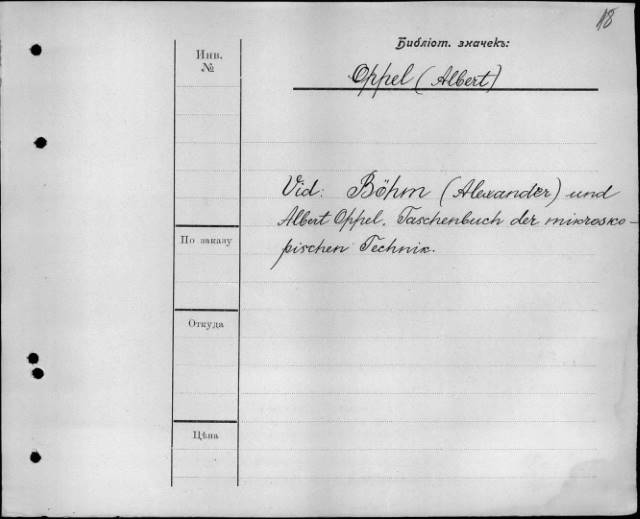 18
Библіот. значекъ:
Инв.
№
Oppel (Albert)
Vid: Böhm (Alexander) und
Albert Oppel. Taschenbuch der mikrosko-
pischen Technik.
По заказу
Откуда
Цѣна